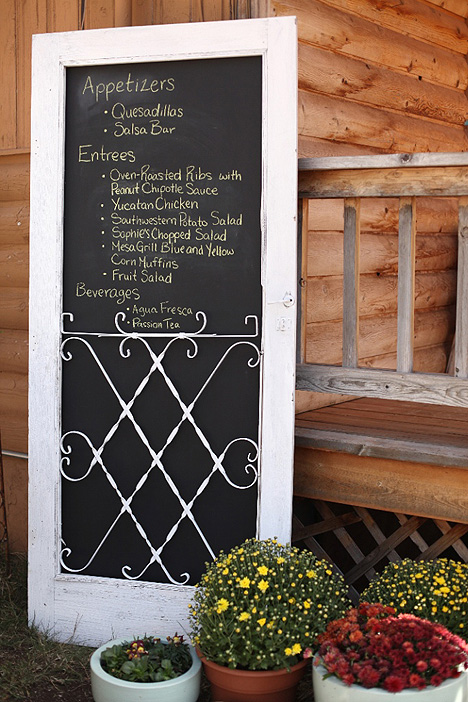 Appetizers
• Quesadillas
• Salsa Bar
Entrees
• Oven-Roasted Ribs with
Peanut Chipotle Sauce
• Yucatan Chicken
• Southwestern Potato Salad
• Sophie's Chopped Salad
• Mesa Grill Blue and Yellow
Corn Muffins
• Fruit Salad
Beverages
• Agua Fresca
• Passion Tea